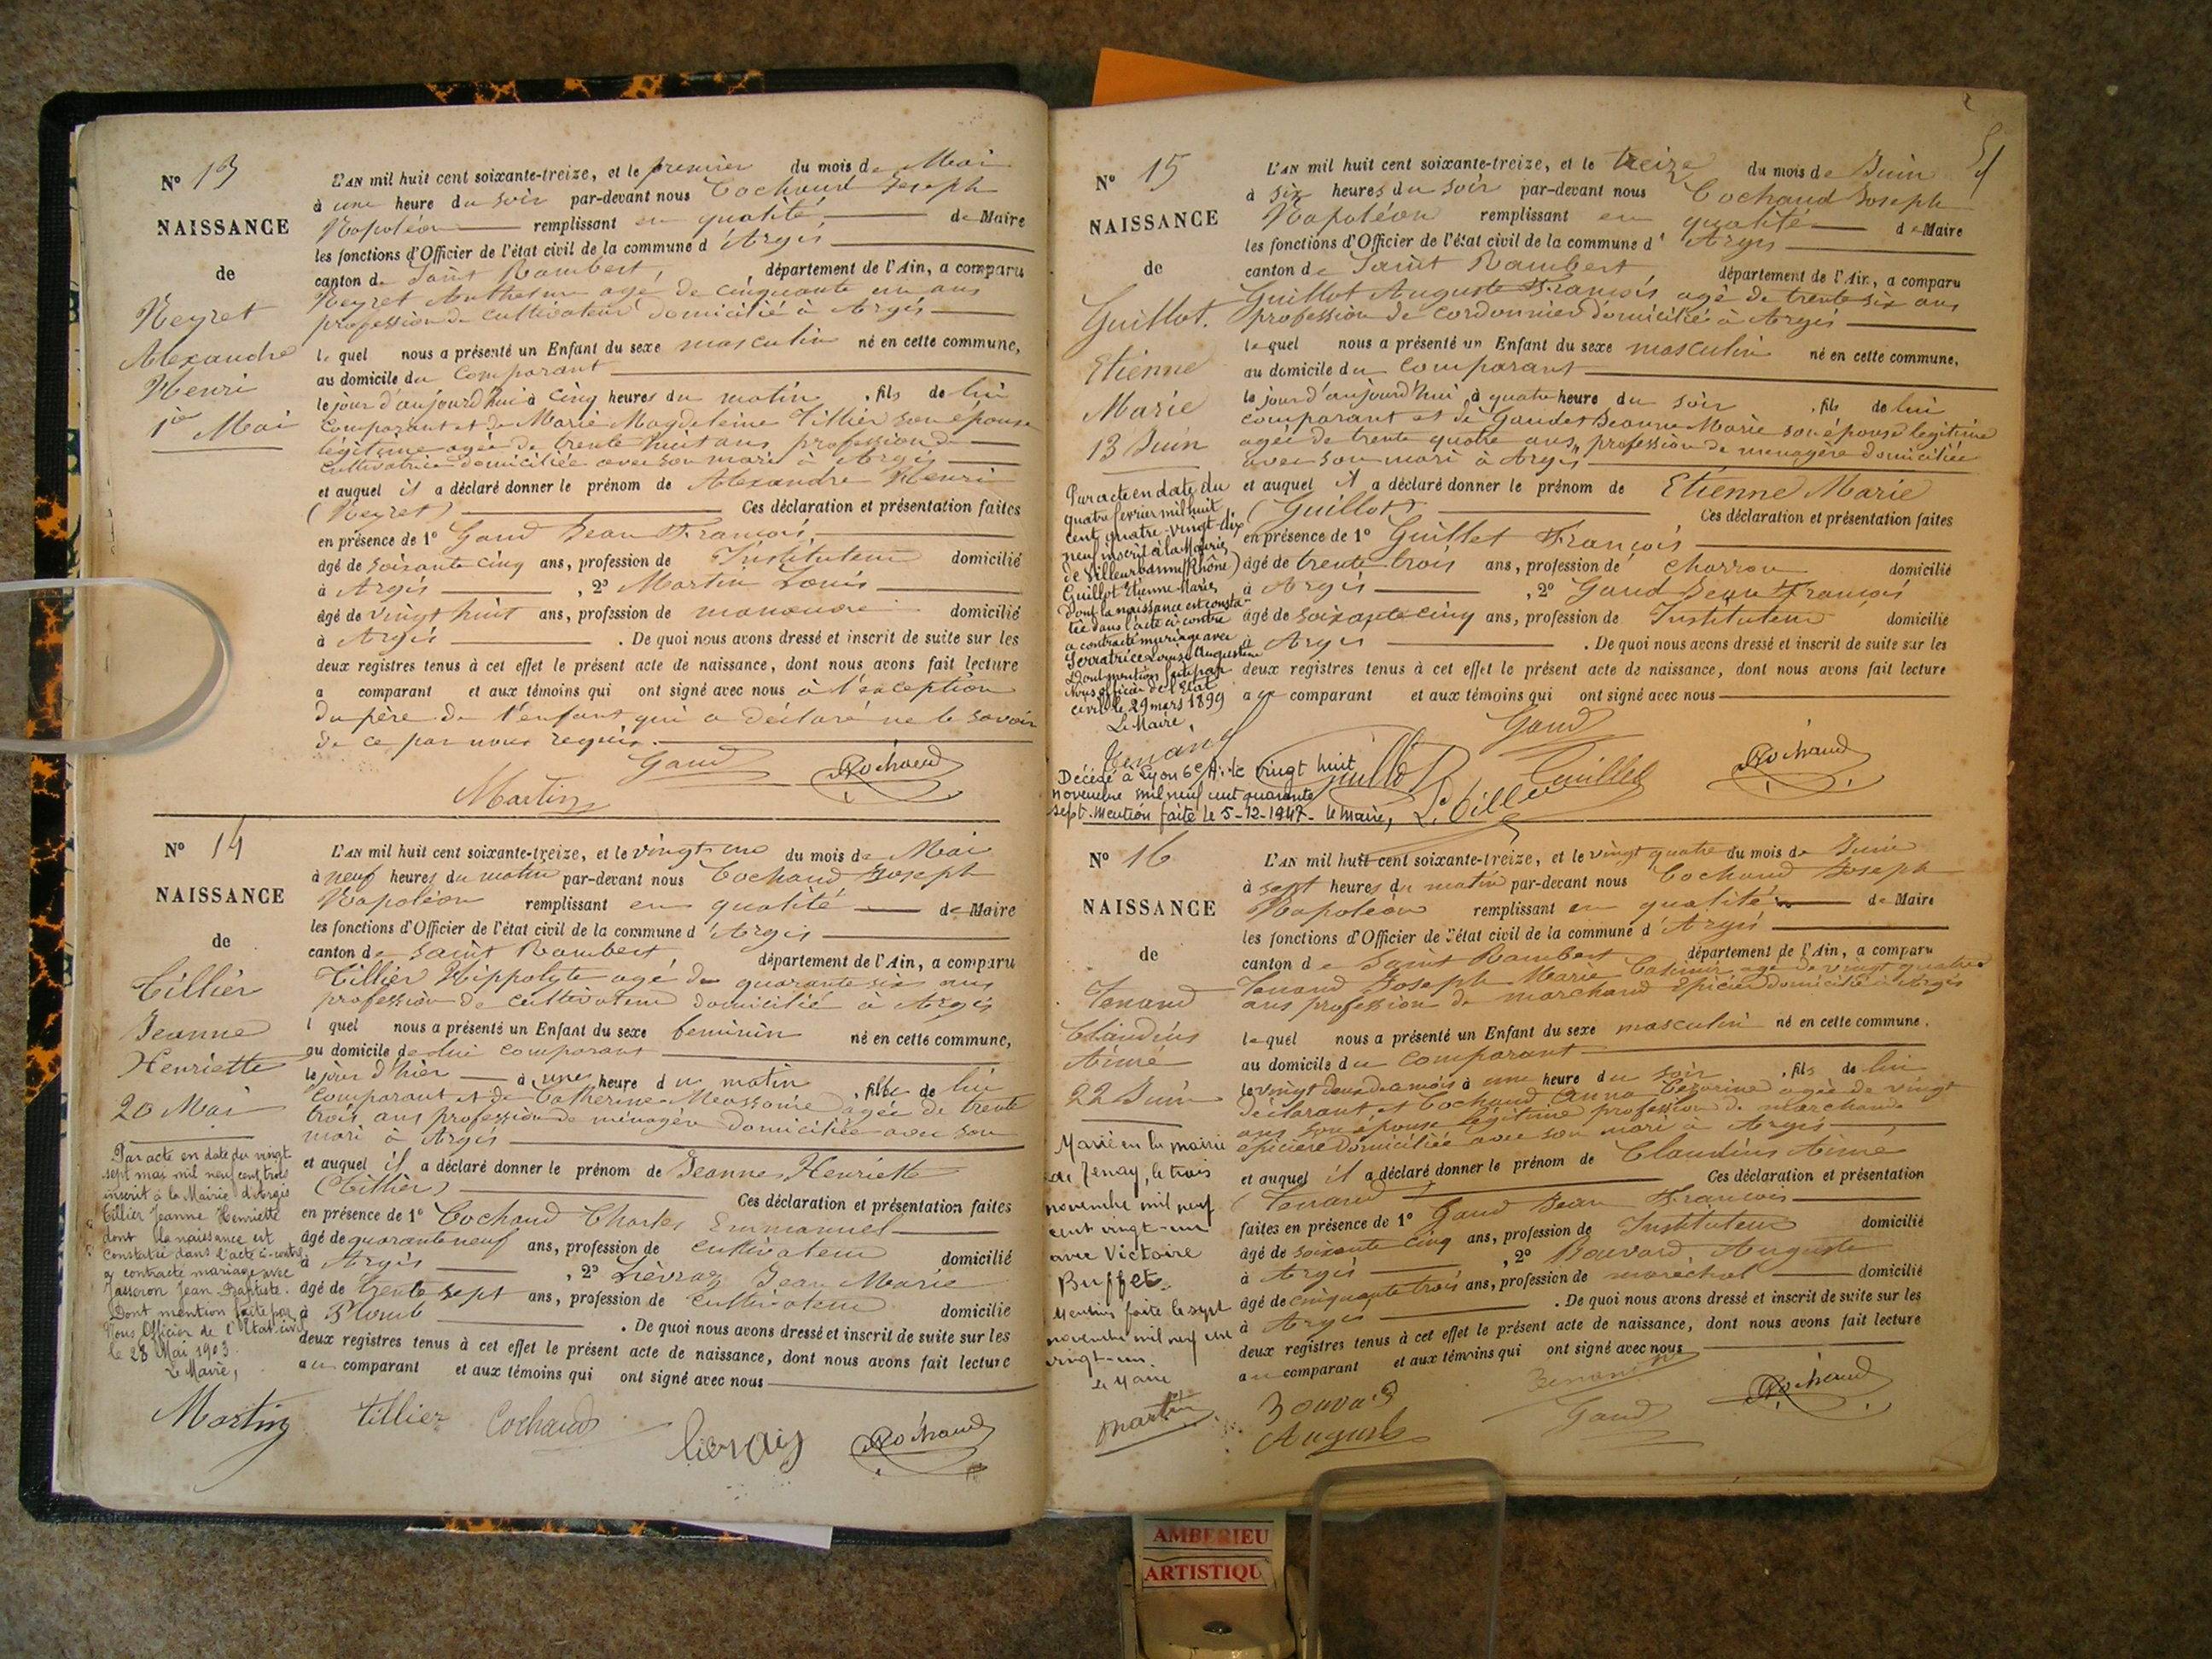 Nº 13
NAISSANCE
de
Neyret
Alexandre
Henri
1er Mai
L'AN mil huit cent soixante-treize, et le premier du mois de Mai
à une heure du soir par-devant nous Cochaud Joseph
Napoléon remplissant en qualité de Maire
les fonctions d'Officier de l'état civil de la commune d'Argis
canton de Saint Rambert, département de l'Ain, a comparu
Neyret Anthelme agé de cinquante un ans
profession de cultivateur domicilié à Argis
lequel nous a présenté un Enfant du sexe masculin né en cette commune,
au domicile du comparant
le jour d'aujourd'hui à cinq heures du matin, fils de lui
comparant et de Marie Magdeleine Tillier son épouse
légitime agée de trente huit ans profession de
cultivatrice domiciliée avec son mari à Argis
et auquel il a déclaré donner le prénom de Alexandre Henri
(Neyret) Ces déclaration et présentation faites
en présence de 1º Gaud Jean François,
âgé de soixante cinq ans, profession de Instituteur domicilié
à Argis, 2º Martin Louis
âgé de vingt huit ans, profession de domicilié
à Argis. De quoi nous avons dressé et inscrit de suite sur les
deux registres tenus à cet effet le présent acte de naissance, dont nous avons fait lecture
a comparant et aux témoins qui ont signé avec nous à l'exception
du père de l'enfant qui a déclaré ne le savoir
de ce par nous requis.
Gaud
Cochaud
Martin
Nº 14
NAISSANCE
de
Tillier
Jeanne
Henriette
20 Mai
Par acte en date du vingt
sept mai mil neuf cent trois
inscrit à la Mairie d'Argis
Tillier Jeanne Henriette
dont la naissance est
constatée dans l'acte ci-contre
a contracté mariage avec
Jasseron Jean-Baptiste.
Dont mention faite par
Nous Officier de l'Etat-civil
le 28 Mai 1903
Le Maire,
Martin
L'AN mil huit cent soixante-treize, et le vingt un du mois de Mai
à neuf heures du matin par-devant nous Cochaud Joseph
Napoléon remplissant en qualité de Maire
les fonctions d'Officier de l'état civil de la commune d'Argis
canton de Saint Rambert département de l'Ain, a comparu
Tillier Hippolyte agé de quarante six ans
profession de cultivateur domicilié à Argis
l quel nous a présenté un Enfant du sexe feminin né en cette commune,
au domicile de lui comparant
le jour d'hier à une heure du matin, fille de lui
comparant et de Catherine agée de trente
trois ans profession de ménagère domiciliée avec son
mari à Argis
et auquel il a déclaré donner le prénom de Jeanne Henriette
(Tillier) Ces déclaration et présentation faites
en présence de 1º Cochaud Charles Emmanuel
âgé de quarante neuf ans, profession de cultivateur domicilié
à Argis, 2º Lièvraz Jean Marie
âgé de trente sept ans, profession de cultivateur domicilié
à. De quoi nous avons dressé et inscrit de suite sur les
deux registres tenus à cet effet le présent acte de naissance, dont nous avons fait lecture
au comparant et aux témoins qui ont signé avec nous
tillier Cochaud Cochaud
Nº 15
NAISSANCE
de
Guillot.
Etienne
Marie
13 Juin
Par acte en date du
quatre fevrier mil huit
cent quatre-vingt-dix
neuf inscrit à la Mairie
de Villeurbanne (Rhône)
Guillot Etienne Marie
dont la naissance est consta-
tée dans l'acte ci-contre
a contracté mariage avec
Serratrice Louise Augustine
Dont mention faite par
Nous officier de l'Etat
civil le 29 mars 1899
Le Maire,
Décédé à Lyon 6e A. le vingt huit
novembre mil neuf cent quarante
sept. Mention faite le 5-12-1947. le Maire,
L'AN mil huit cent soixante-treize, et le treize du mois de Juin
à six heures du soir par-devant nous Cochaud Joseph
Napoléon remplissant en qualité de Maire
les fonctions d'Officier de l'état civil de la commune d'Argis
canton de Saint Rambert, département de l'Ain, a comparu
Guillot Auguste François agé de trente six ans
profession de cordonnier domicilié à Argis
lequel nous a présenté un Enfant du sexe masculin né en cette commune,
au domicile du comparant
le jour d'aujourd'hui à quatre heure du soir, fils de lui
comparant et de Gaudet Jeanne Marie son épouse legitime
agée de trente quatre ans, profession de menagère domiciliée
avec son mari à Argis
et auquel il a déclaré donner le prénom de Etienne Marie
(Guillot) Ces déclaration et présentation faites
en présence de 1º Guillet François
âgé de trente trois ans, profession de charron domicilié
à Argis, 2º Gaud Jean François
âgé de soixante cinq ans, profession de Instituteur domicilié
à Argis. De quoi nous avons dressé et inscrit de suite sur les
deux registres tenus à cet effet le présent acte de naissance, dont nous avons fait lecture
a comparant et aux témoins qui ont signé avec nous
Gaud
Guillot Guillet Cochaud
Nº 16
NAISSANCE
de
Tenand
Claudius
Aimé
22 Juin
Marié en la mairie
de Tenay, le trois
novembre mil neuf
cent vingt-un
avec Victoire
Buffet.
Mention faite le sept
novembre mil neuf cent
vingt-un.
Le Maire
Martin
L'AN mil huit cent soixante-treize, et le vingt quatre du mois de Juin
à sept heures du matin par-devant nous Cochaud Joseph
Napoléon remplissant en qualité de Maire
les fonctions d'Officier de l'état civil de la commune d'Argis
canton de Saint Rambert département de l'Ain, a comparu
Tenand Joseph Marie Casimir agé de vingt quatre
ans profession de marchand épicier domicilié à Argis
lequel nous a présenté un Enfant du sexe masculin né en cette commune,
au domicile du comparant
le vingt deux de ce mois à une heure du soir, fils de lui
déclarant et Cochaud Anna Cezarine agée de vingt
ans son épouse légitime profession de marchande
épicière domiciliée avec son mari à Argis
et auquel il a déclaré donner le prénom de Claudius Aimé
(Tenand) Ces déclaration et présentation
faites en présence de 1º Gaud Jean François
âgé de soixante cinq ans, profession de Instituteur domicilié
à Argis, 2º Bouvard Auguste
âgé de cinquante trois ans, profession de maréchal domicilié
à Argis. De quoi nous avons dressé et inscrit de suite sur les
deux registres tenus à cet effet le présent acte de naissance, dont nous avons fait lecture
au comparant et aux témoins qui ont signé avec nous
Tenand
Bouvard
Auguste Gaud Cochaud
AMBERIEU
ARTISTIQU